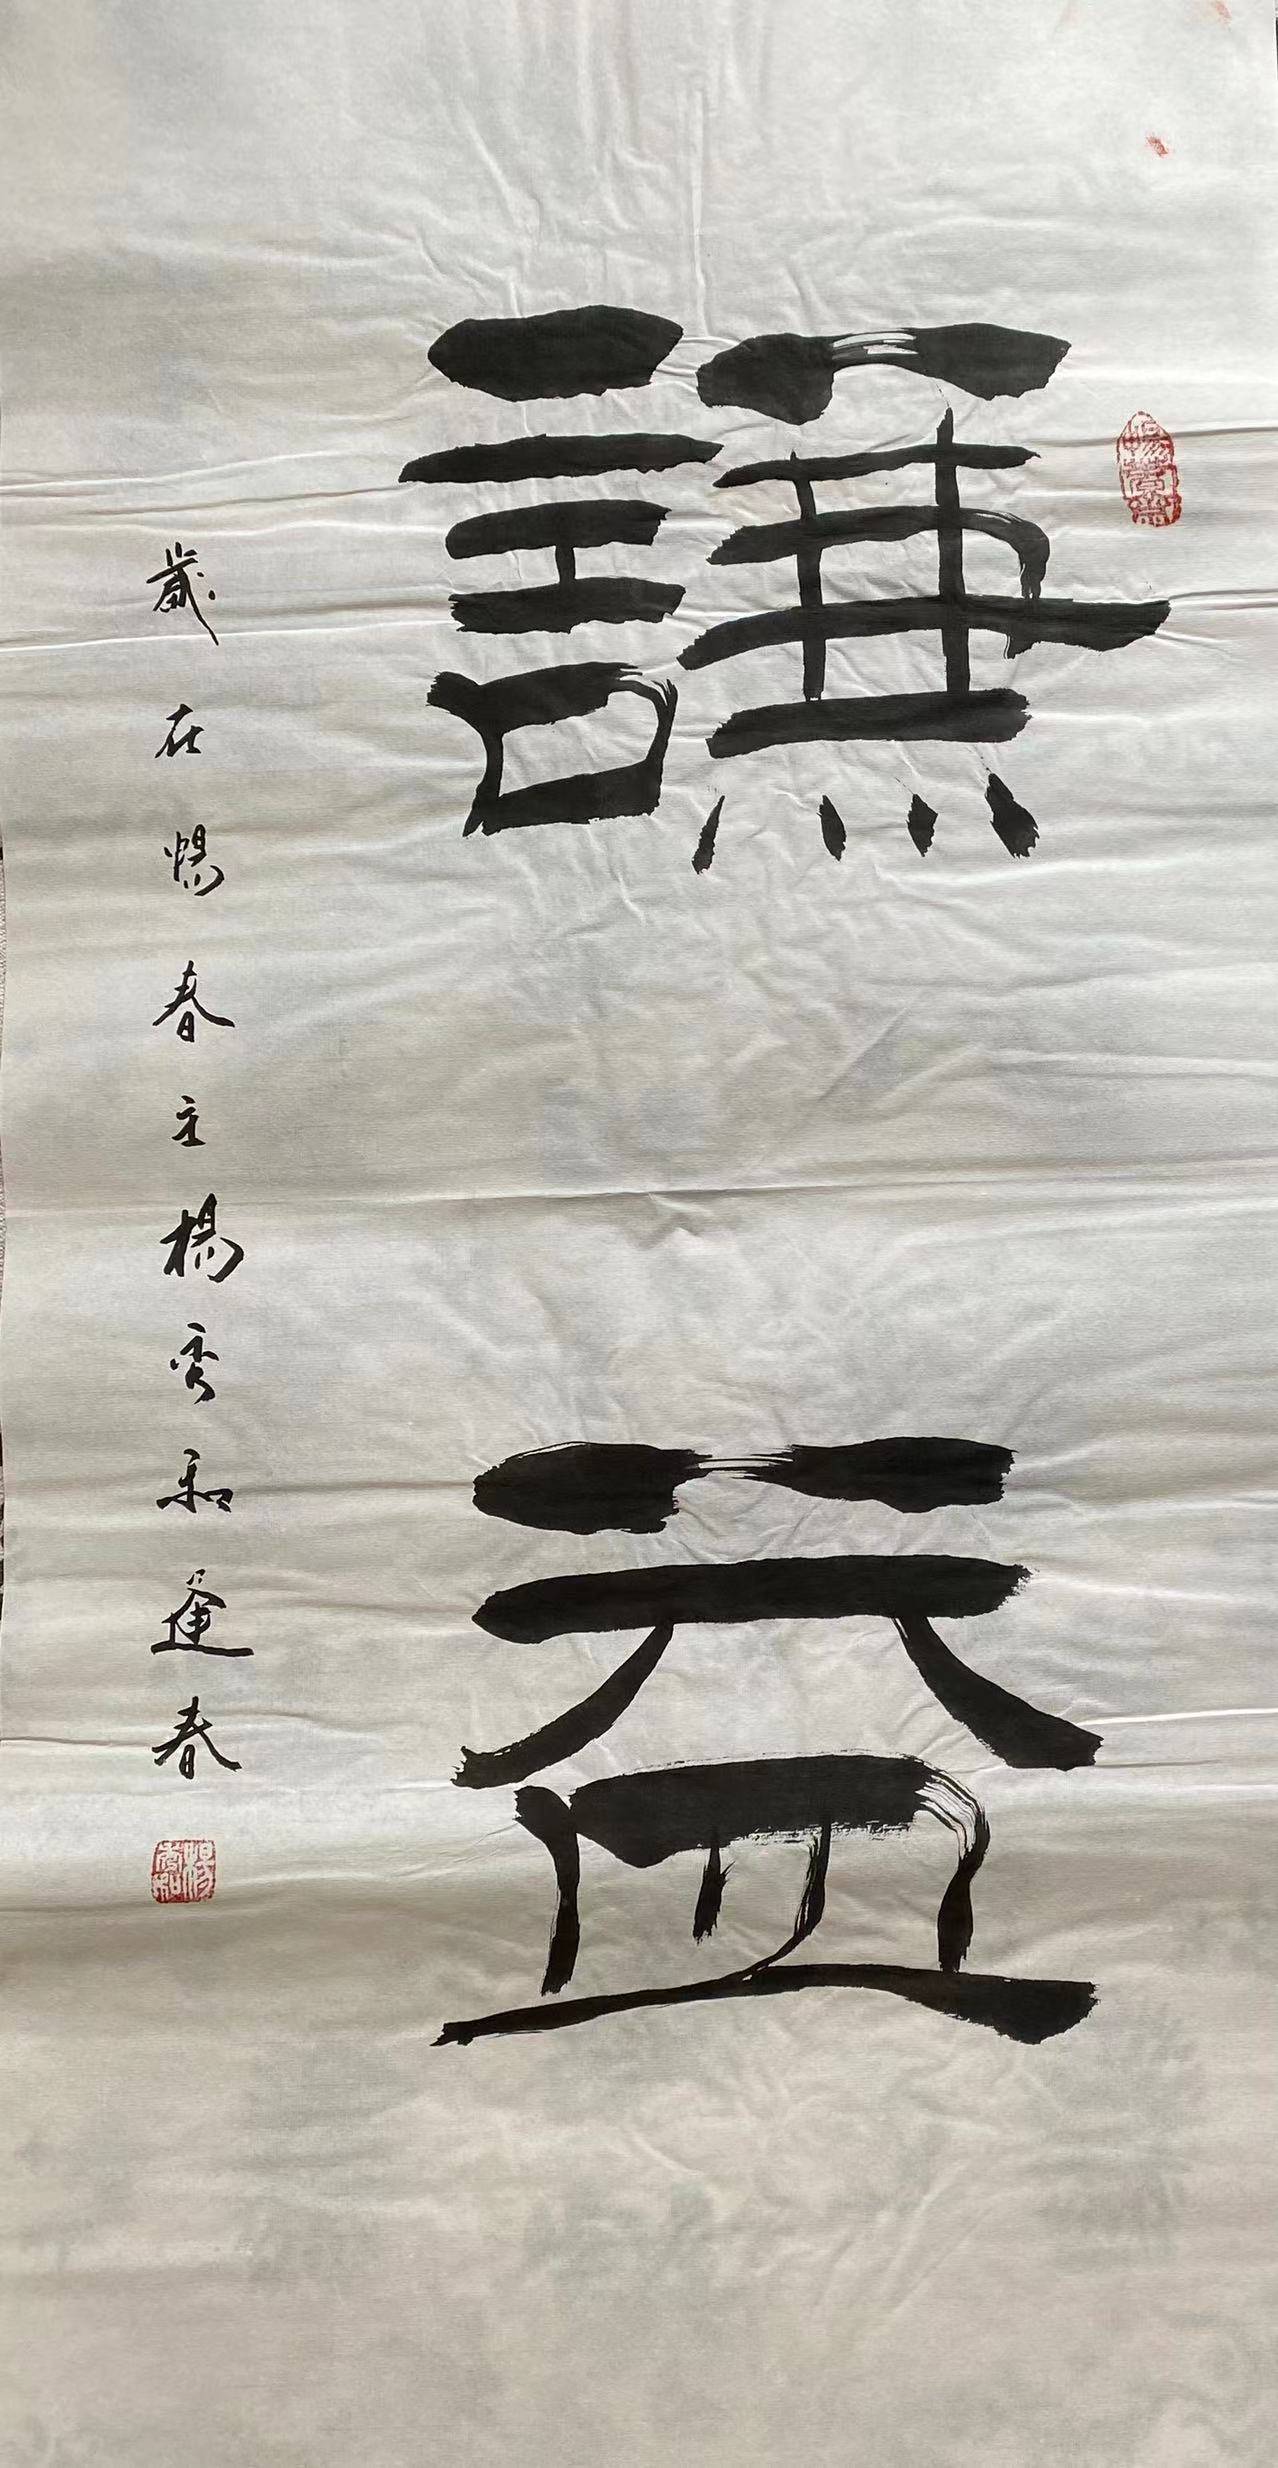 謙益
歲在惕春主楊秀和逢春